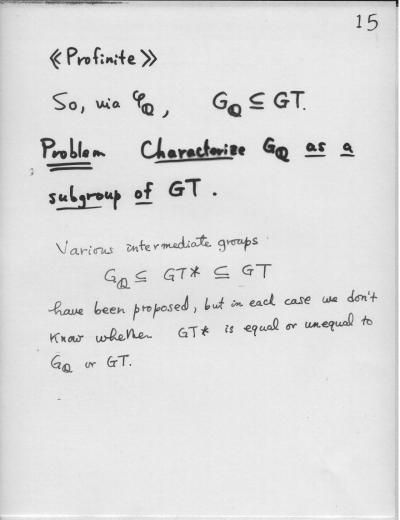 15
《Profinite》
So, via φ_Q, G_Q ⊆ GT.
Problem Characterize G_Q as a
subgroup of GT.
Various intermediate groups
G_Q ⊆ GT* ⊆ GT
have been proposed, but in each case we don't
know whether GT* is equal or unequal to
G_Q or GT.